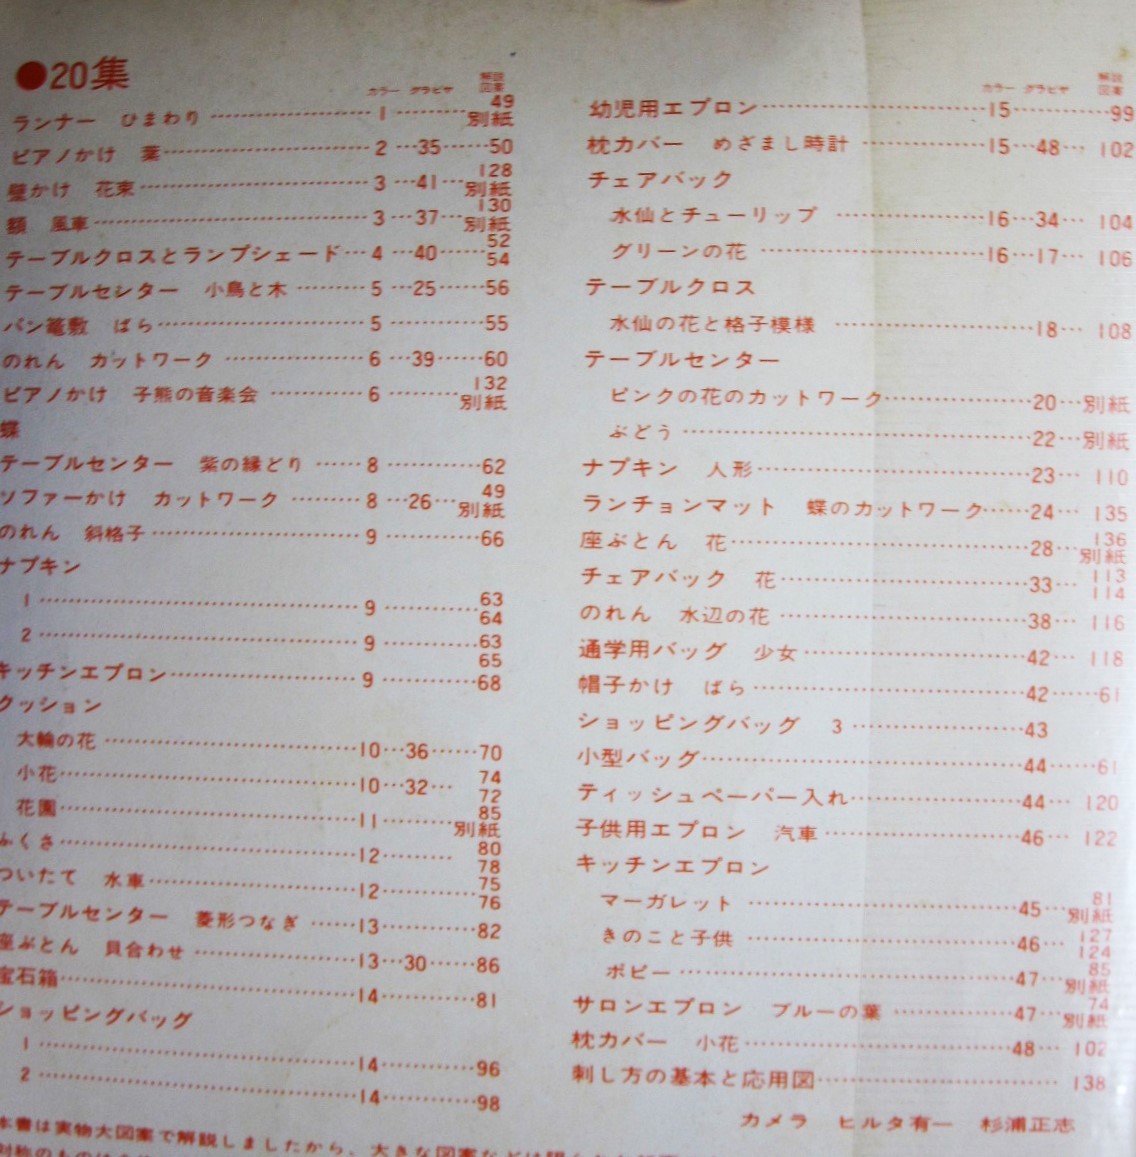 ●20集
カラー グラビヤ 解説図案
ランナー ひまわり……1……49 別紙
ピアノかけ 葉……2…35……50
壁かけ 花束……3…41…128 別紙
額 風車……3…37…130 別紙
テーブルクロスとランプシェード…4…40……52 54
テーブルセンター 小鳥と木……5…25……56
パン篭敷 ばら……5……55
のれん カットワーク……6…39……60
ピアノかけ 子熊の音楽会……6……132 別紙
蝶
テーブルセンター 紫の縁どり……8……62
ソファーかけ カットワーク……8…26…49 別紙
のれん 斜格子……9……66
ナプキン
1……9……63 64
2……9……63 65
キッチンエプロン……9……68
クッション
大輪の花……10…36……70
小花……10…32…74 72
花園……11……85 別紙
ふくさ……12……80 78
ついたて 水車……12……75 76
テーブルセンター 菱形つなぎ……13……82
座ぶとん 貝合わせ……13…30……86
宝石箱……14……81
ショッピングバッグ
1……14……96
2……14……98
カラー グラビヤ 解説図案
幼児用エプロン……15……99
枕カバー めざまし時計……15…48…102
チェアバック
水仙とチューリップ……16…34…104
グリーンの花……16…17…106
テーブルクロス
水仙の花と格子模様……18…108
テーブルセンター
ピンクの花のカットワーク……20…別紙
ぶどう……22…別紙
ナプキン 人形……23…110
ランチョンマット 蝶のカットワーク……24…135
座ぶとん 花……28…136 別紙
チェアバック 花……33…113 114
のれん 水辺の花……38…116
通学用バッグ 少女……42…118
帽子かけ ばら……42……61
ショッピングバッグ 3……43
小型バッグ……44……61
ティッシュペーパー入れ……44…120
子供用エプロン 汽車……46…122
キッチンエプロン
マーガレット……45…81 別紙
きのこと子供……46…127 124
ポピー……47…85 別紙
サロンエプロン ブルーの葉……47…74 別紙
枕カバー 小花……48…102
刺し方の基本と応用図……138
カメラ ヒルタ有一 杉浦正志
本書は実物大図案で解説しましたから、大きな図案などは